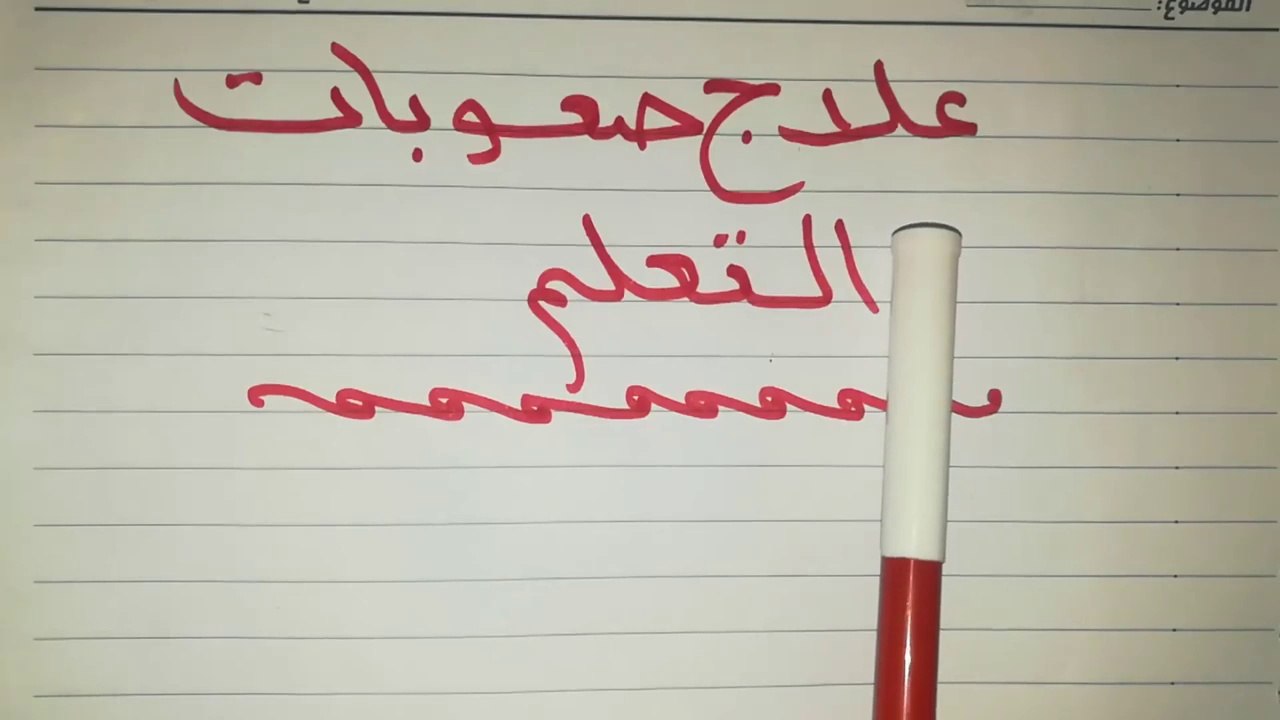 الموضوع:
علاج صعوبات
التعلم